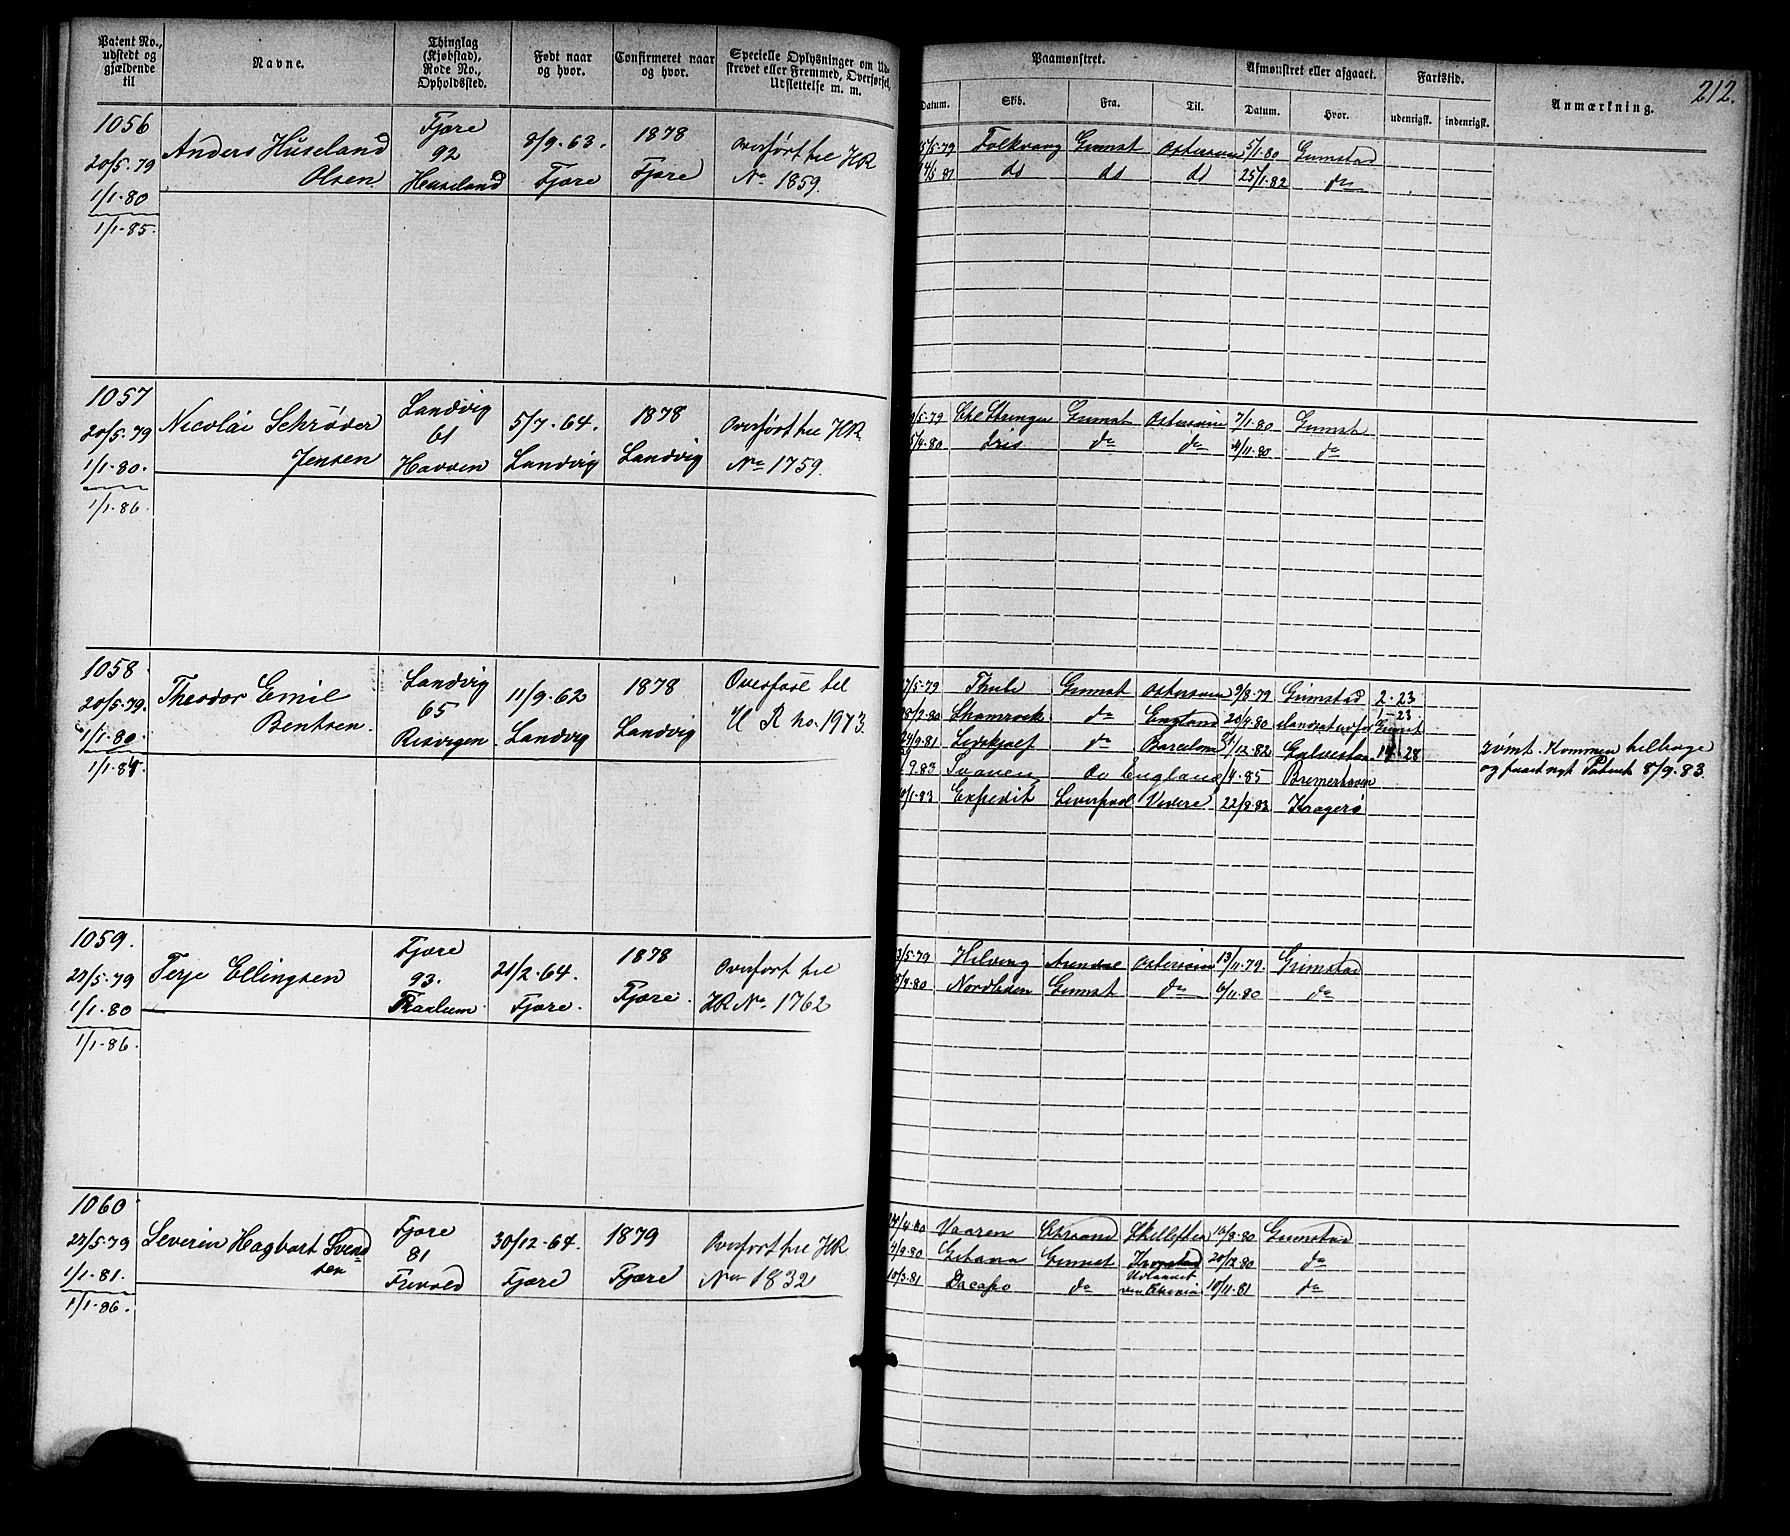 212.
Patent No., udstedt og gjældende til
Navne.
Thinglag (Kjøbstad), Rode No., Opholdssted.
Født naar og hvor.
Confirmeret naar og hvor.
Specielle Oplysninger om Ud-
skrevet eller Fremmed, Overførsel,
Udslettelse m. m.
Paamønstret.
Datum. Skib. Fra. Til.
Afmønstret eller afgaaet.
Datum. Hvor.
Fartstid.
udenrigsk. indenrigsk.
Anmærkning.
1056 Fjære 8/9·63. 1878
20/5·79 Anders Huseland 92 Overført til HR
1/1·80 Olsen Huseland Fjære Fjære No 1859.
1/1·85.
15/5·79 Folkvang Grimst Østersøen 5/1·80 Grimstad
14/5 81 do do do 25/1·82 do
1057 Landvig 5/7·64. 1878
20/5·79 Nicolai Schrøder 61 Overført til HR
1/1·80. Jensen Havven Landvig Landvig No 1759.
1/1·86.
9/5·79 Grimst Østersøen 7/1·80 Grimst
5/4·80 Iris do do 4/11·80 do
1058 Landvig 11/9·62 1878 Overføre til
20/5·79. Theodor Emil 65 H R no. 1973.
1/1·80. Bentsen Risvigen Landvig Landvig
1/1·84
7/5·79 Thule Grimst Østersøen 9/8·79 Grimstad 2-23
28/2·80 Shamrock do England 20/9·80 Grimst 1-23
24/9·81 Lidskjalf do Barcelona 12·82 Galveston 14-28
9.83 Svanen do England /4·85 Bremerhaven
10/1·83 Expedit Liverpool Videre 22/8·83 Kragerø
rømt. Kommen tilbage
og faaet nyt Patent 8/9·83.
1059. Fjære 21/2·64. 1878
27/5·79 Terje Ellingsen 93. Overført til
1/1·80 Fjære. Fjære. HR No. 1762
1/1·86.
3/5·79 Arendal Østersøen 13/11·79. Grimstad
8/4·80 Nordheden Grimst do 6/11·80 do
1060 Fjære 30/12·64. 1879
27/5·79 Severin Hagbart Svend- 81 Overført til HR
1/1·81. sen Frivold Fjære Fjære No 1832
1/1·86.
24/4·80 Vaaren Chrsand Skellefteå 10/8·80 Grimstad
4/9·80 Gitana Grimst Kronstad 20/12·80 do
10/3·81 Dacapo do Udlandet 10/11·81 do